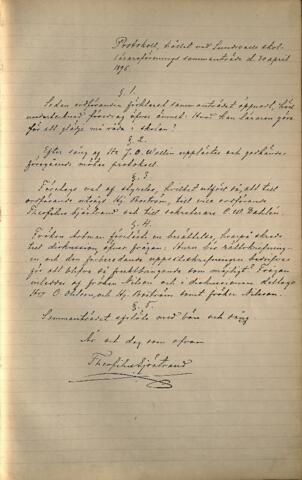 Protokoll, hållet vid Sundsvalls skol-
lärareförenings sammanträde d. 30 april
1896.
§ 1.
Sedan ordföranden förklarat sammanträdet öppnadt, höll
undertecknad föredrag öfver ämnet: Hvad kan läraren göra
för att glädje må råda i skolan?
§ 2.
Efter sång af Hr J. O. Wallin upplästes och godkändes
föregående mötes protokoll.
§ 3.
Företogs val af styrelse, hvilket utföll så, att till
ordförande utsågs Hr Boström, till vice ordförande
Theofilus Sjöstrand och till sekreterare O. W. Dahlén.
§ 4.
Fröken Bohman föreläste en berättelse, hvarpå skreds
till diskussion öfver frågan: Huru bör rättskrifnings-
och den förberedande uppsatsskrifningen bedrifvas
för att blifva så fruktbringande som möjligt? Frågan
inleddes af fröken Nilson och i diskussionen deltogo
Hrr O. Ohlson, och Hr Boström samt fröken Nilsson.
§ 5.
Sammanträdet afslöts med bön och sång.
År och dag som ofvan
Theofilus Sjöstrand